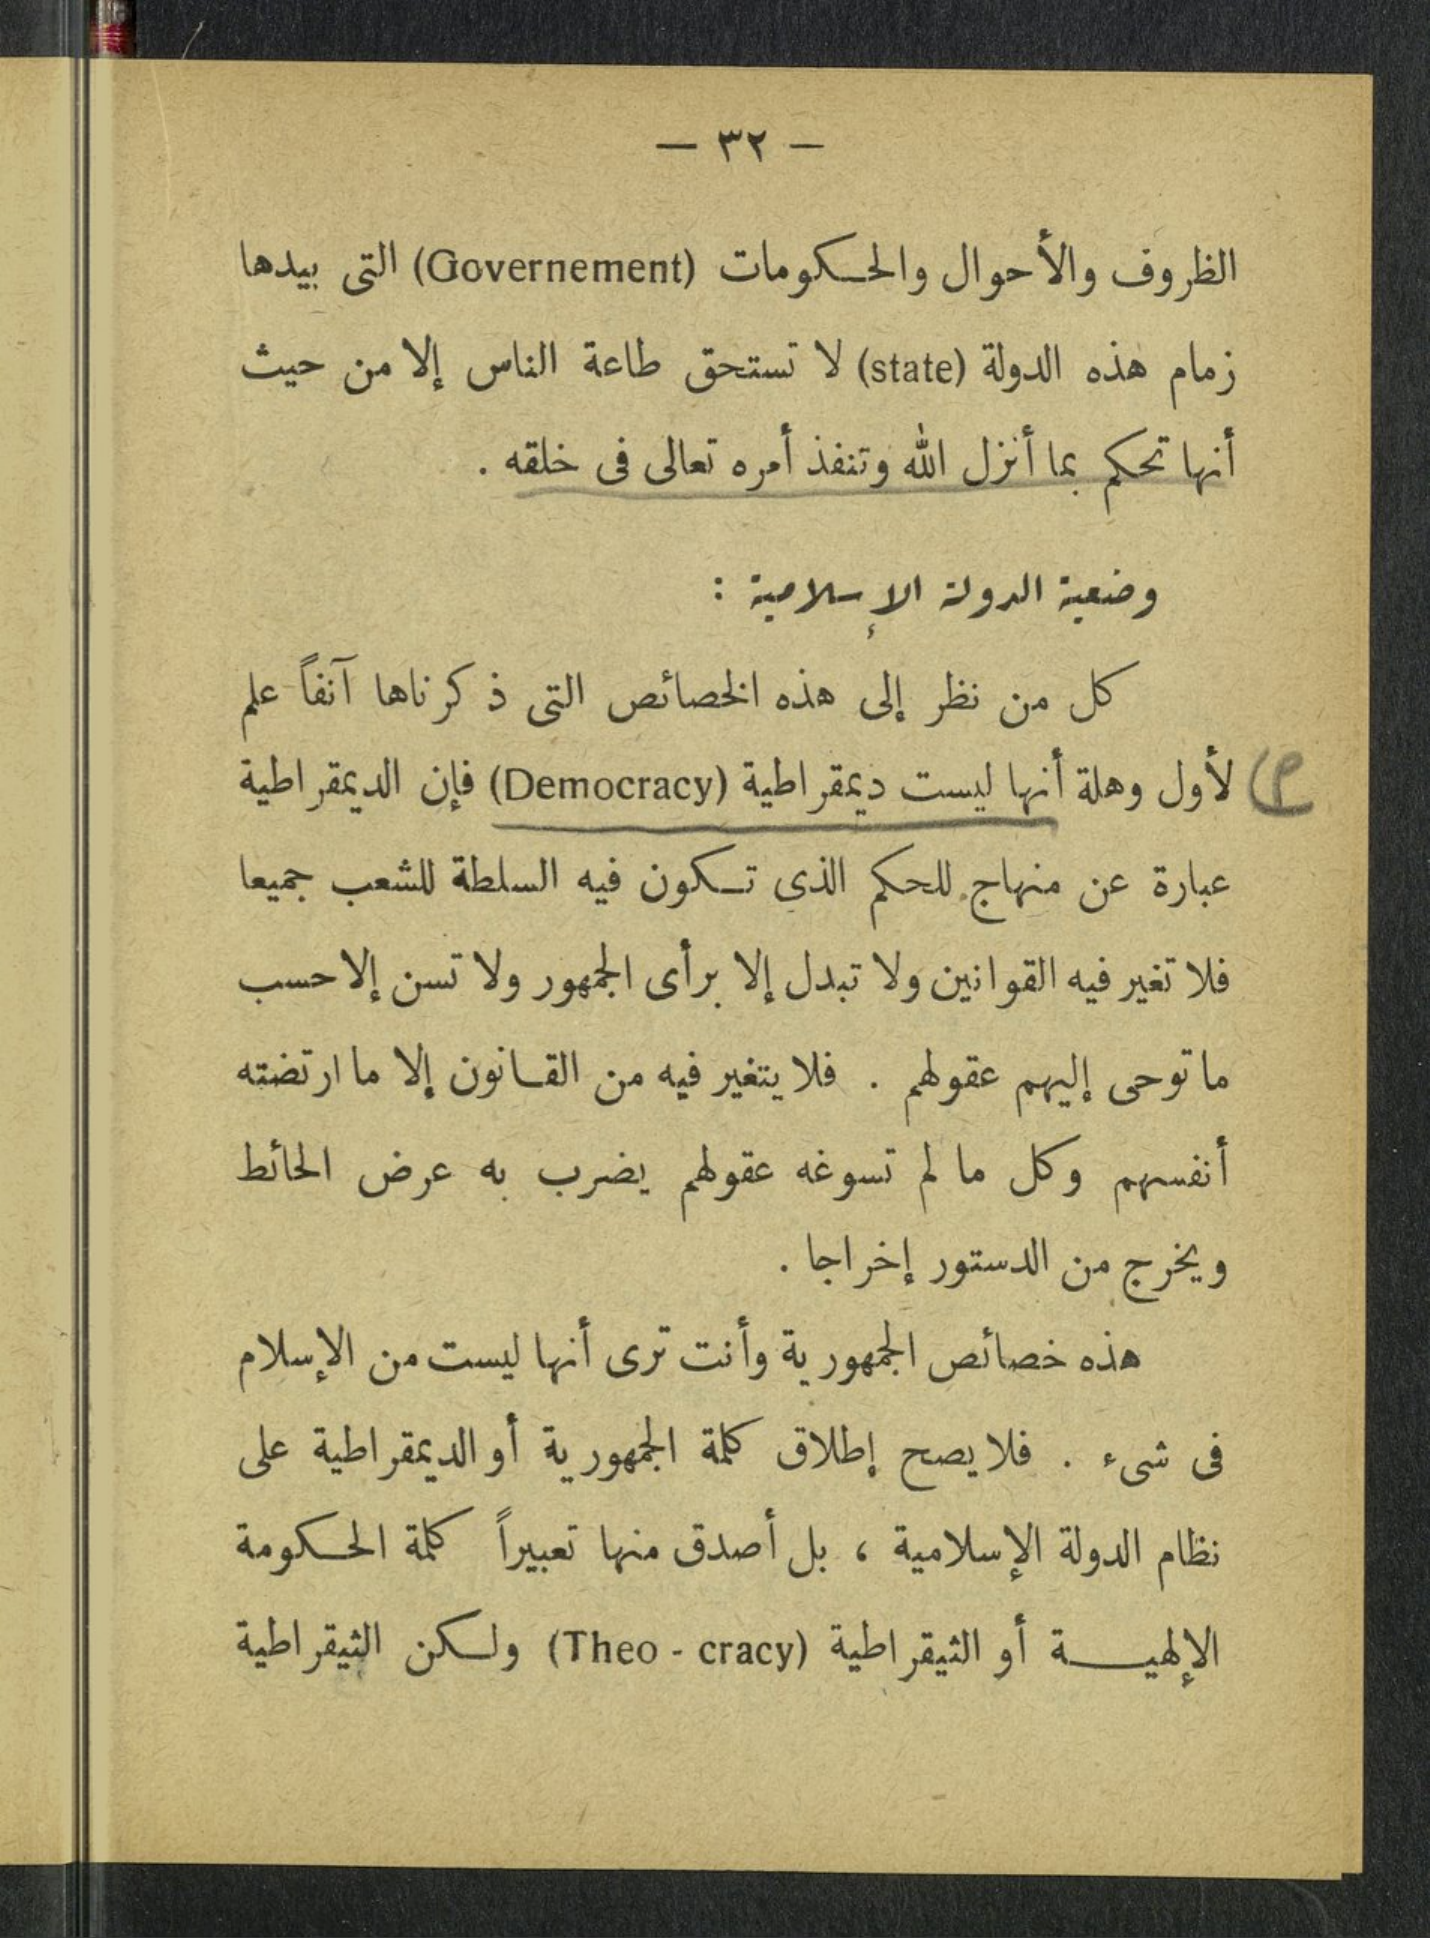 — ٣٢ —
الظروف والأحوال والحكومات (Governement) التى بيدها
زمام هذه الدولة (state) لا تستحق طاعة الناس إلا من حيث
أنها تحكم بما أنزل الله وتنفذ أمره تعالى فى خلقه .
وضعية الدولة الإسلامية :
كل من نظر إلى هذه الخصائص التى ذكرناها آنفاً علم
لأول وهلة أنها ليست ديمقراطية (Democracy) فإن الديمقراطية
عبارة عن منهاج للحكم الذى تكون فيه السلطة للشعب جميعا
فلا تغير فيه القوانين ولا تبدل إلا برأى الجمهور ولا تسن إلا حسب
ما توحى إليهم عقولهم . فلا يتغير فيه من القانون إلا ما ارتضته
أنفسهم وكل ما لم تسوغه عقولهم يضرب به عرض الحائط
ويخرج من الدستور إخراجا .
هذه خصائص الجمهورية وأنت ترى أنها ليست من الإسلام
فى شىء . فلا يصح إطلاق كلمة الجمهورية أو الديمقراطية على
نظام الدولة الإسلامية ، بل أصدق منها تعبيراً كلمة الحكومة
الإلهية أو الثيقراطية (Theo - cracy) ولكن الثيقراطية